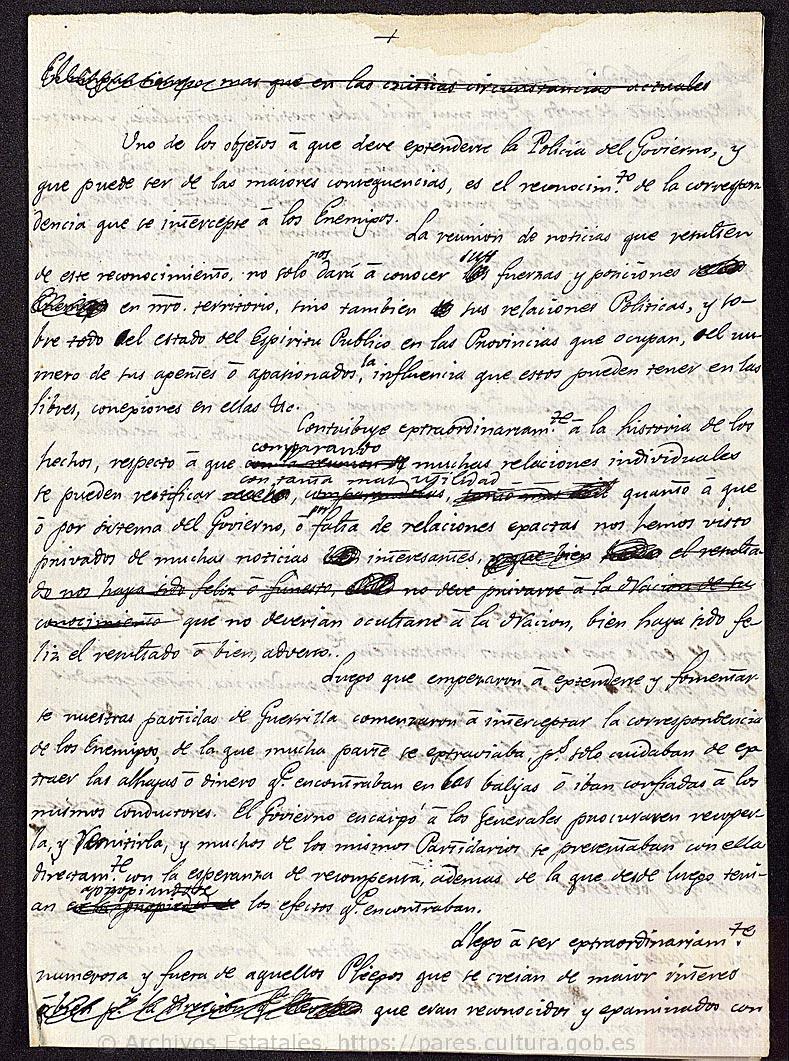 +
mas que en las criticas circunstancias actuales
Uno de los objetos à que deve extenderse la Policia del Govierno, y
que puede ser de las maiores consequencias, es el reconocim.to de la correspon
dencia que se intercepte à los Enemigos.
La reunion de noticias que resulten
de este reconocimiento, no solo nos dará à conocer sus fuerzas y posiciones
en nro. territorio, sino tambien sus relaciones Politicas, y so-
bre todo el estado del Espiritu Publico en las Provincias que ocupan, el nu-
mero de sus agentes ò apasionados, la influencia que estos pueden tener en las
libres, conexiones en ellas &c.
Contribuye extraordinariam.te à la historia de los
hechos, respecto à que comparando con la reunion de muchas relaciones individuales
se pueden rectificar con tanta mas utilidad, quanto à que
ò por sistema del Govierno, ò por falta de relaciones exactas nos hemos visto
privados de muchas noticias interesantes, el resulta-
do nos haya sido feliz ò funesto, no deve privarse à la Nacion de su
conocimiento que no deverian ocultarse à la Nacion, bien haya sido fe-
liz el resultado ò bien adverso.
Luego que empezaron à extenderse y fomentar-
se nuestras partidas de Guerrilla comenzaron à interceptar la correspondencia
de los Enemigos, de la que mucha parte se extraviaba, p.r solo cuidaban de ex-
traer las alhajas ò dinero q.e encontraban en las balijas ò iban confiadas à los
mismos conductores. El Govierno encargó à los Generales procurasen recoger-
la, y remitirla, y muchos de los mismos Partidarios se presentaban con ella
directam.te con la esperanza de recompensa, ademas de la que desde luego teni-
an apropiandose los efectos q.e encontraban.
Llego à ser extraordinariam.te
numerosa y fuera de aquellos Pliegos que se creian de maior interes
que eran reconocidos y examinados con
© Archivos Estatales, https://pares.cultura.gob.es